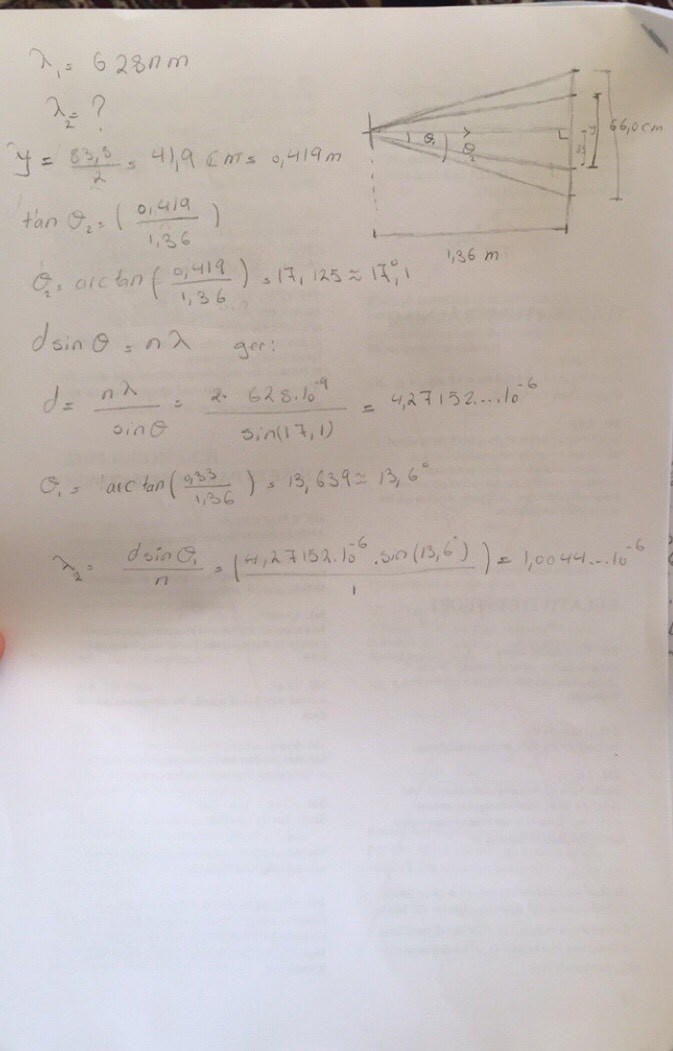 λ₁ = 628nm
λ₂ = ?
y = 83,8/2 = 41,9 cm = 0,419 m
tan θ₂ = (0,419/1,36)
θ₂ = arctan(0,419/1,36) = 17,125 ≈ 17,1°
d sin θ = nλ ger:
d = nλ/sinθ = 2· 628·10⁻⁹/sin(17,1) = 4,27152...10⁻⁶
θ₁ = arctan(0,33/1,36) = 13,639 ≈ 13,6°
λ₂ = d sin θ₁/n = (4,27152·10⁻⁶ · sin(13,6°)/1) = 1,0044...10⁻⁶
θ₁
θ₂
y
66,0cm
1,36 m